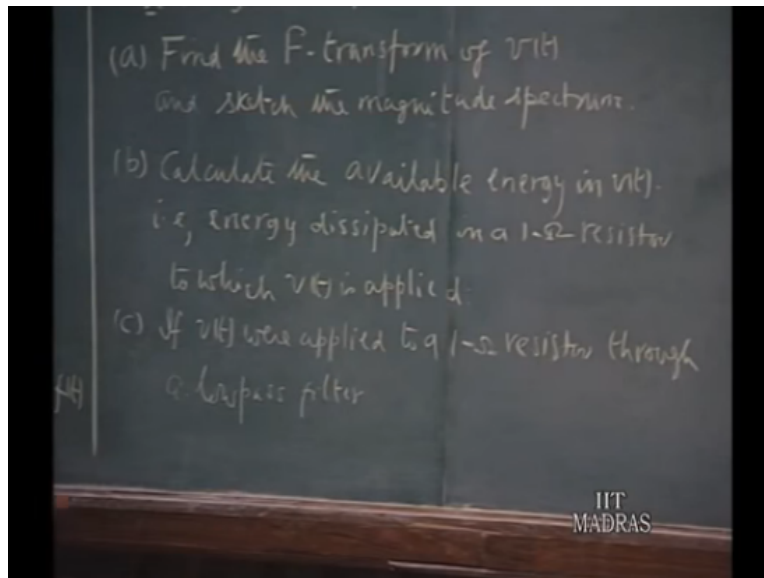 (a) Find the F-transform of v(t)
and sketch the magnitude spectrum.
(b) Calculate the available energy in v(t).
i.e, energy dissipated in a 1-Ω resistor
to which v(t) is applied.
(c) If v(t) were applied to a 1-Ω resistor through
a lowpass filter
f(t)
IIT
MADRAS